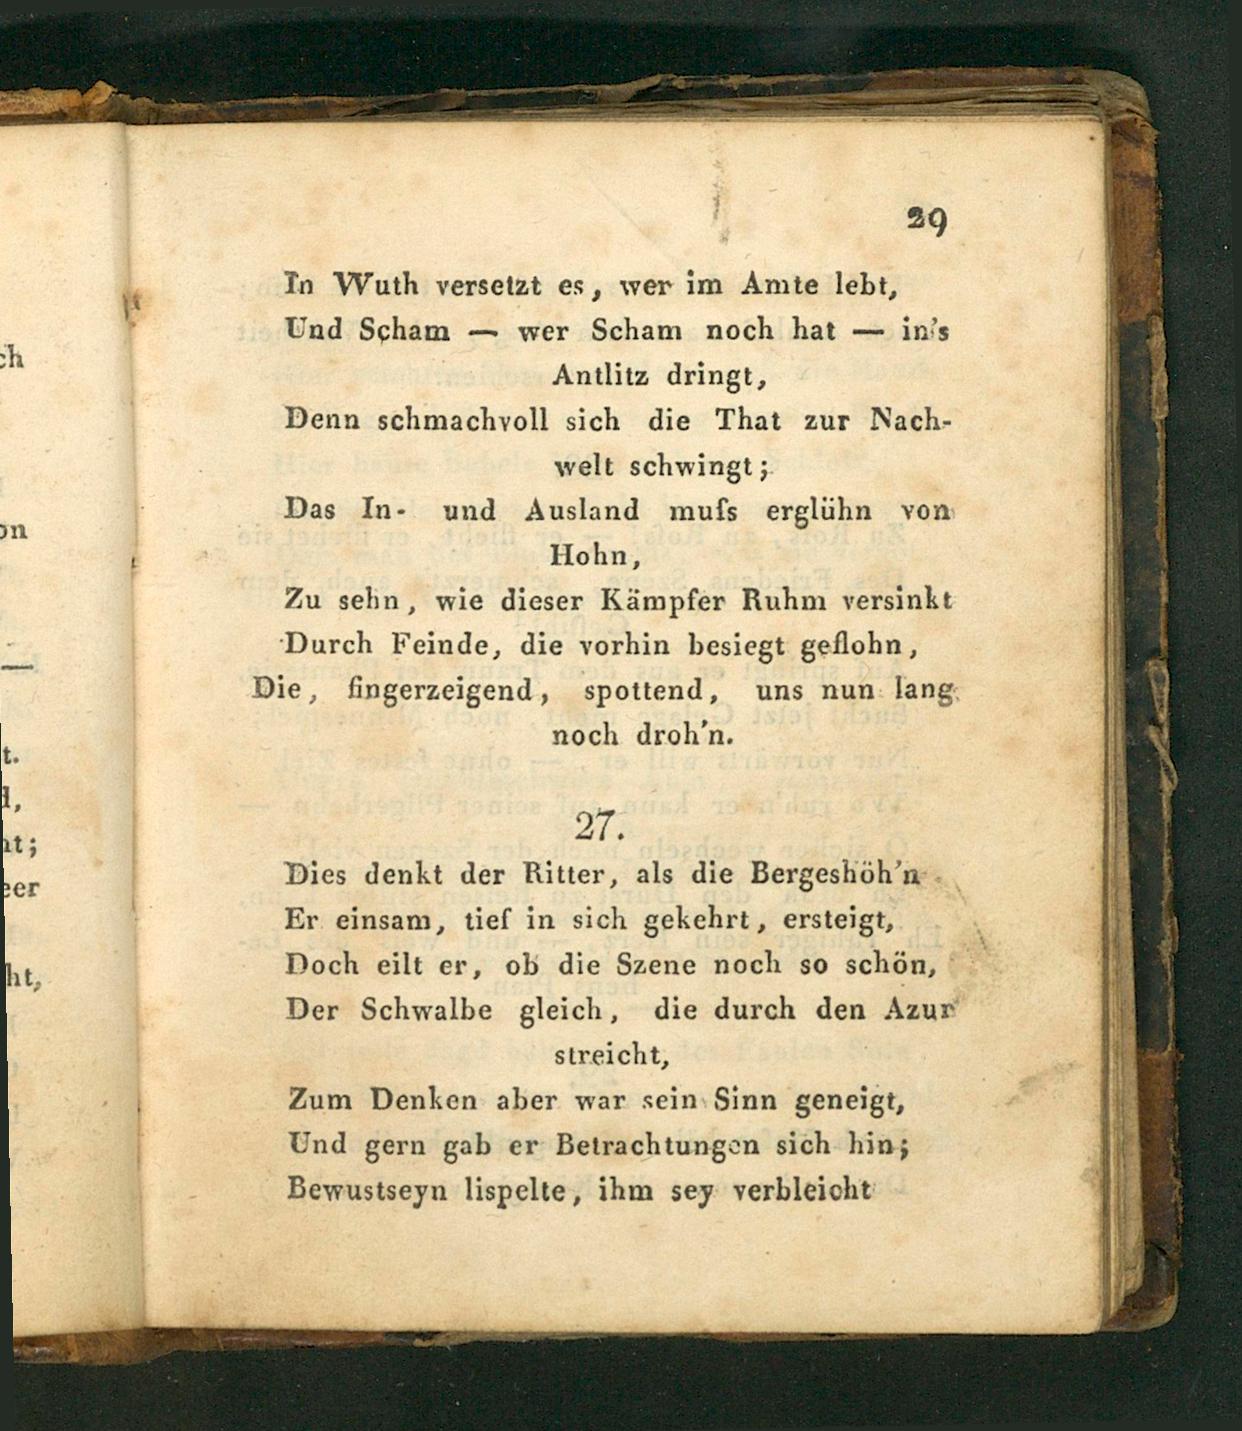 ch
on
—
t.
d,
ht;
eer
ht,
29
In Wuth versetzt es, wer im Amte lebt,
Und Scham — wer Scham noch hat — in's
Antlitz dringt,
Denn schmachvoll sich die That zur Nach-
welt schwingt;
Das In- und Ausland muſs erglühn von
Hohn,
Zu sehn, wie dieser Kämpfer Ruhm versinkt
Durch Feinde, die vorhin besiegt geflohn,
Die, fingerzeigend, spottend, uns nun lang
noch droh'n.
27.
Dies denkt der Ritter, als die Bergeshöh'n
Er einsam, tief in sich gekehrt, ersteigt,
Doch eilt er, ob die Szene noch so schön,
Der Schwalbe gleich, die durch den Azur
streicht,
Zum Denken aber war sein Sinn geneigt,
Und gern gab er Betrachtungen sich hin;
Bewustseyn lispelte, ihm sey verbleicht